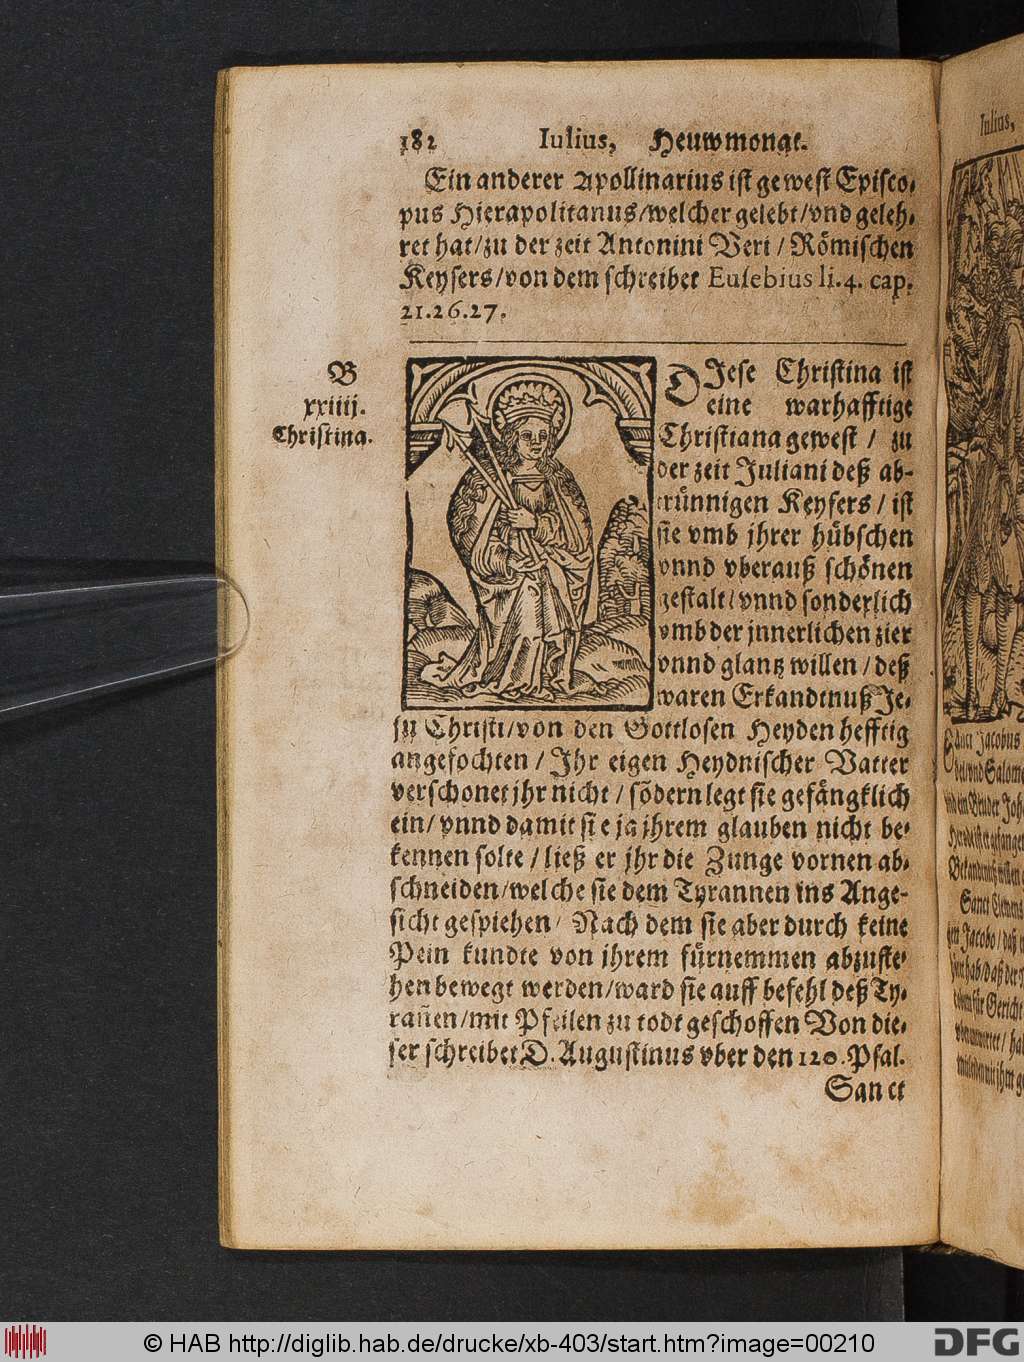 182 Iulius, Heuwmonat.
Ein anderer Apollinarius ist gewest Episco-
pus Hierapolitanus/welcher gelebt/vnd geleh-
ret hat/zu der zeit Antonini Veri/Römischen
Keysers/von dem schreibet Eusebius li.4. cap.
21.26.27.
B
xxiiij.
Christina.
DIese Christina ist
eine warhafftige
Christiana gewest / zu
der zeit Juliani deß ab-
trünnigen Keysers / ist
sie vmb jhrer hübschen
vnnd vberauß schönen
gestalt/vnnd sonderlich
vmb der jnnerlichen zier
vnnd glantz willen / deß
waren Erkandtnuß Je-
su Christi/von den Gottlosen Heyden hefftig
angefochten / Ihr eigen Heydnischer Vatter
verschonet jhr nicht / sõdern legt sie gefängklich
ein/ vnnd damit sie ja jhrem glauben nicht be-
kennen solte / ließ er jhr die Zunge vornen ab-
schneiden/welche sie dem Tyrannen ins Ange-
sicht gespiehen/ Nach dem sie aber durch keine
Pein kundte von jhrem fürnemmen abzuste-
hen bewegt werden/ward sie auff befehl deß Ty-
rañen/mit Pfeilen zu todt geschossen Von die-
ser schreibet D. Augustinus vber den 120. Psal.
Sanct
Iulius,
Sanct Jacobus
vnd Salome
Herodes
Sanct Clemens
Jacobo / daß
© HAB http://diglib.hab.de/drucke/xb-403/start.htm?image=00210
DFG